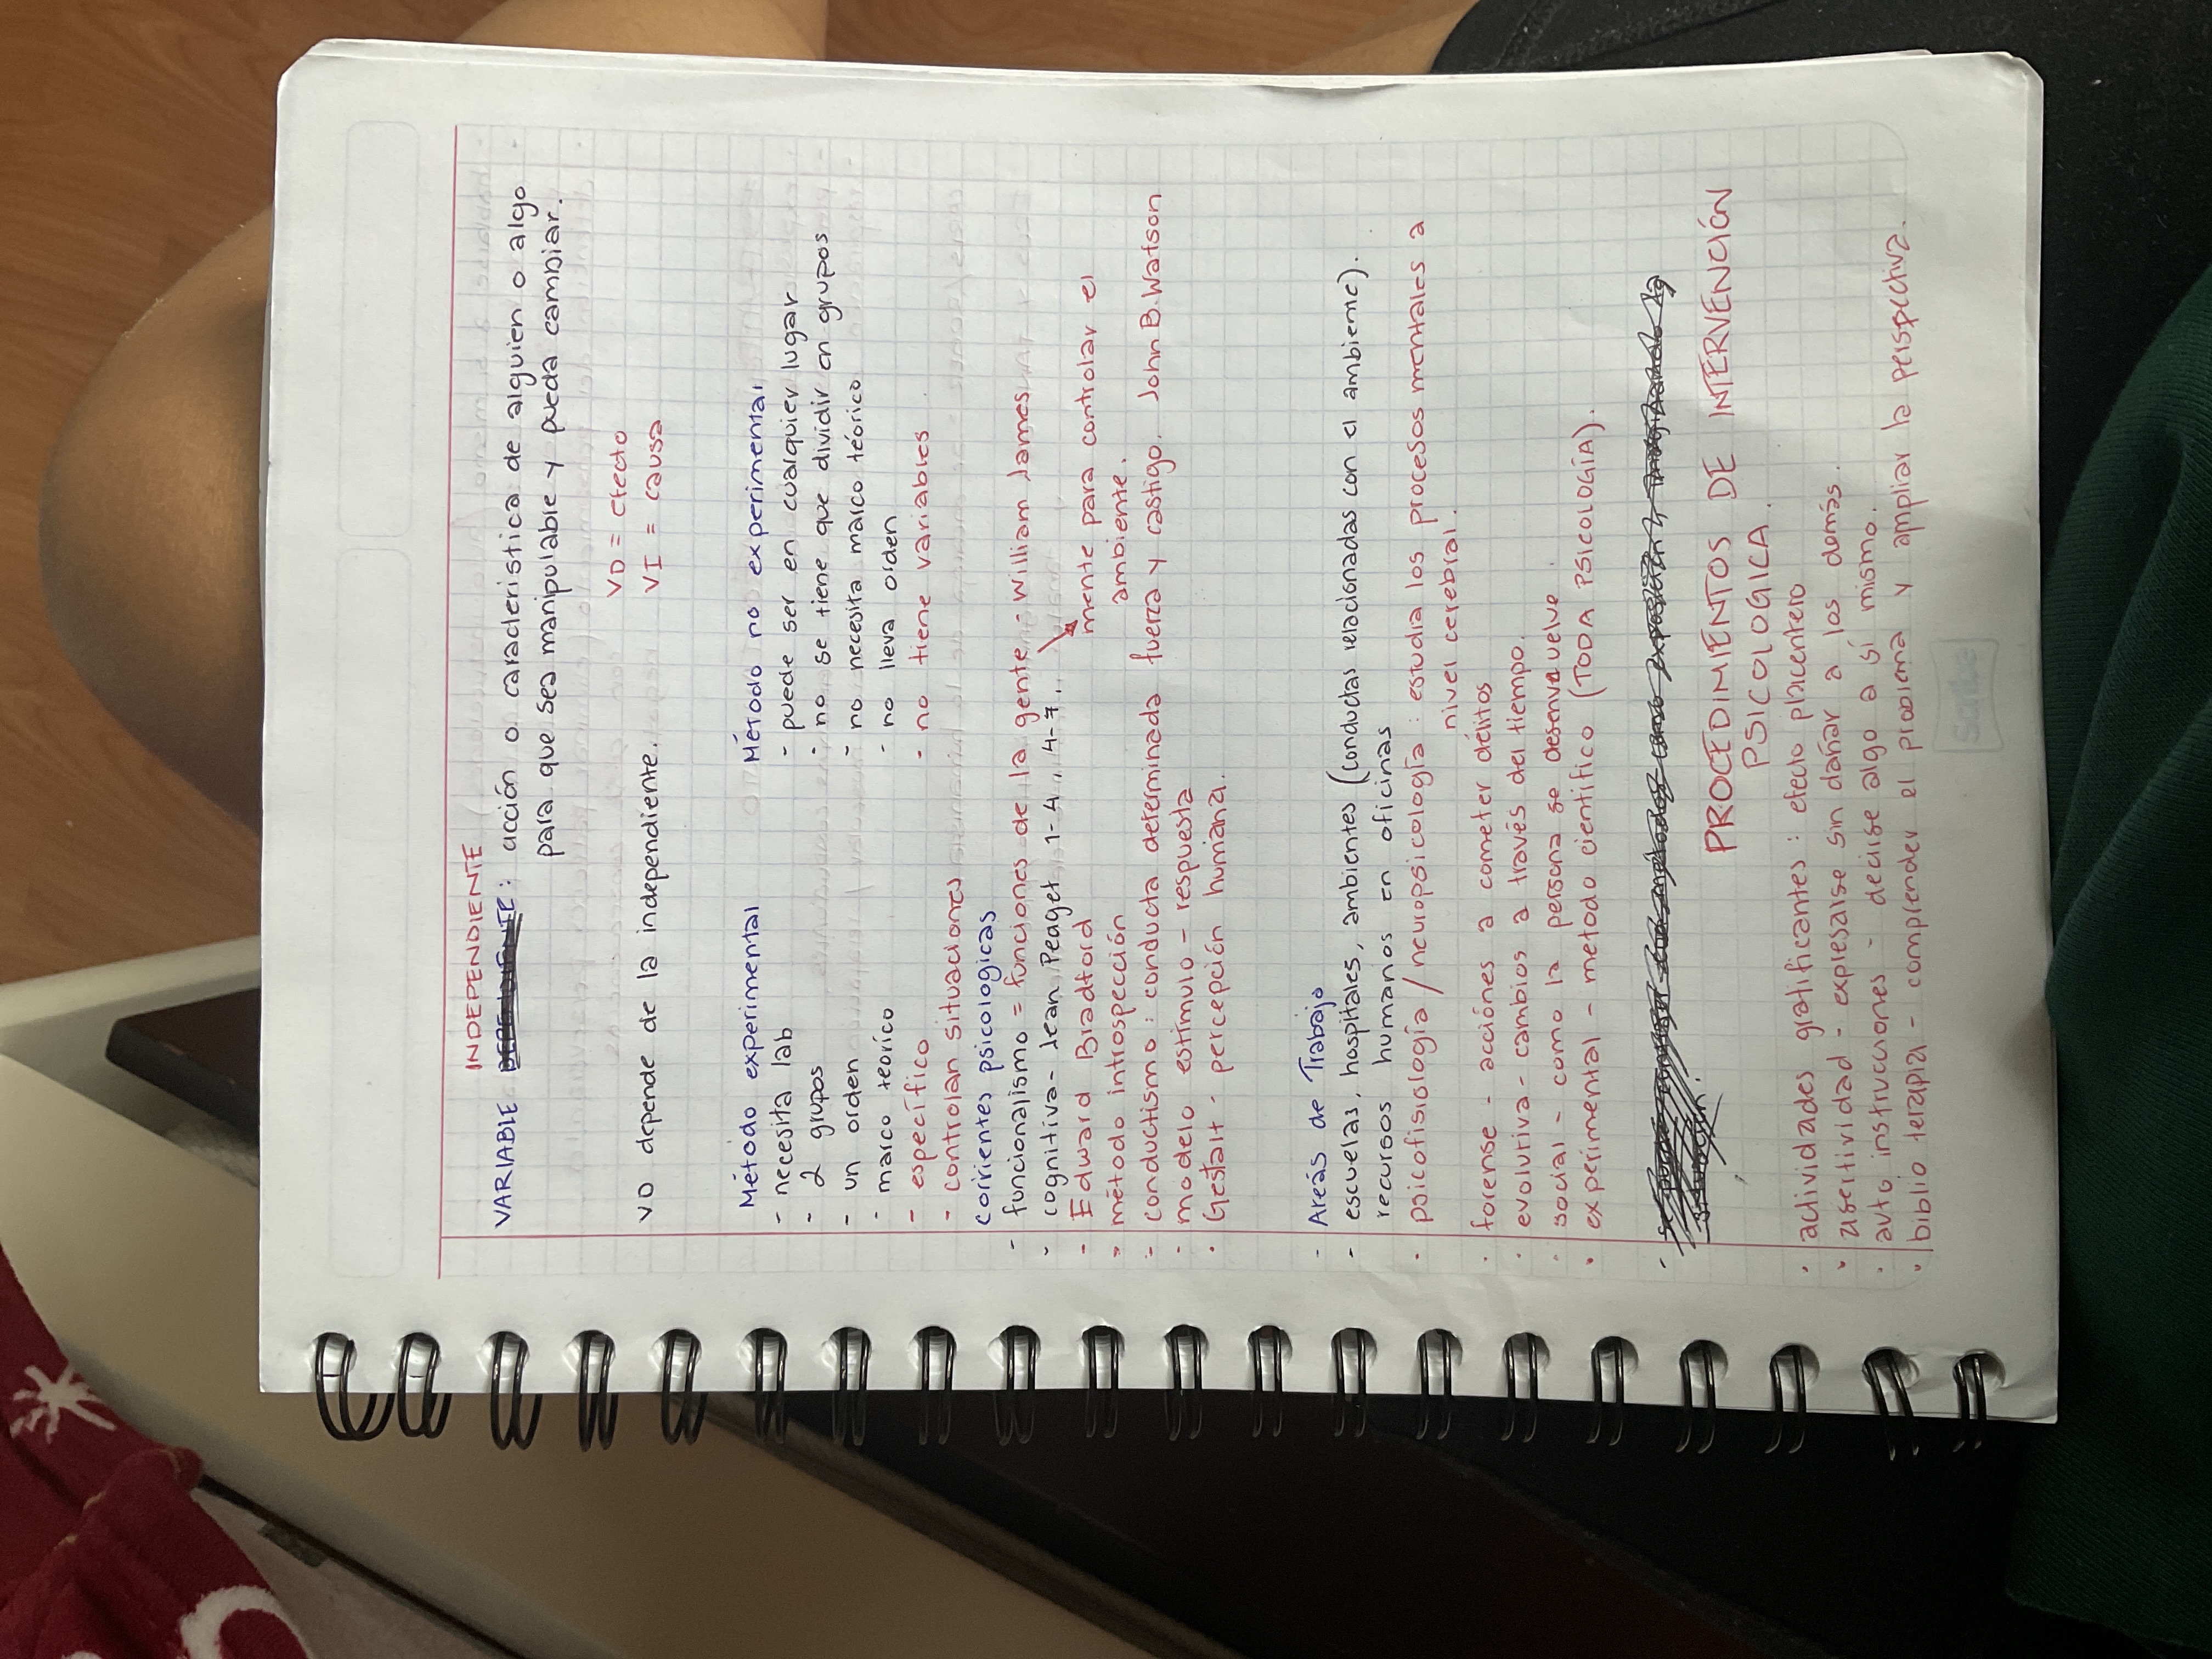 INDEPENDIENTE
VARIABLE : acción o caracteristica de alguien o algo
para que sea manipulable y pueda cambiar.
VD = efecto
VD depende de la independiente. VI = causa
Método experimental
- necesita lab
- 2 grupos
- un orden
- marco teorico
- específico
- controlan situaciones
Método no experimental
- puede ser en cualquier lugar
- no se tiene que dividir en grupos
- no necesita marco teórico
- no lleva orden
- no tiene variables
corrientes psicologicas
- funcionalismo = funciones de la gente - William James
- cognitiva - Jean Peaget 1-4, 4-7.
mente para controlar el
ambiente.
- Edward Bradtford
- método introspección
- conductismo : conducta determinada fuerza y castigo. John B. Watson
- modelo estímulo - respuesta
· Gestalt - percepción humana.
- Areás de Trabajo
- escuelas, hospitales, ambientes (conductas relacionadas con el ambiente).
recursos humanos en oficinas
· psicofisiología / neuropsicología : estudia los procesos mentales a
nivel cerebral.
· forense - acciónes a cometer délitos
· evolutiva - cambios a través del tiempo.
· social - como la persona se desenvuelve.
· experimental - metodo cientifico (TODA PSICOLOGÍA).
PROCEDIMIENTOS DE INTERVENCIÓN
PSICOLOGICA.
· actividades gratificantes : efecto placentero
· asertividad - expresarse sin dañar a los demás.
· auto instrucciones - decirse algo a sí mismo.
· biblio terapia - comprender el problema y ampliar la perspectiva.
Scribe